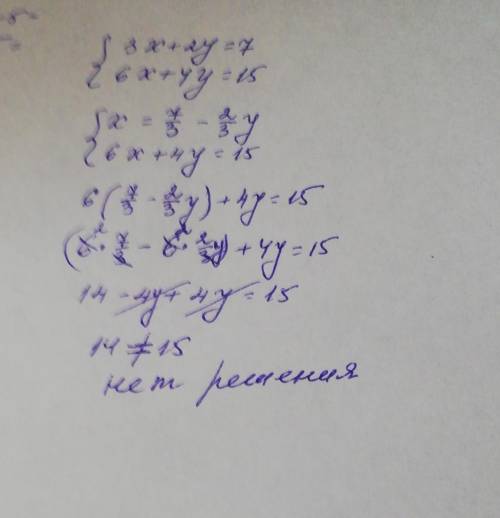 { 3x+2y=7
{ 6x+4y=15
{ x = 7/3 - 2/3 y
{ 6x+4y=15
6(7/3 - 2/3 y)+4y=15
(6² · 7/3 - 6² · 2/3 y)+4y=15
14 -4y+ 4y = 15
14 ≠ 15
нет решения